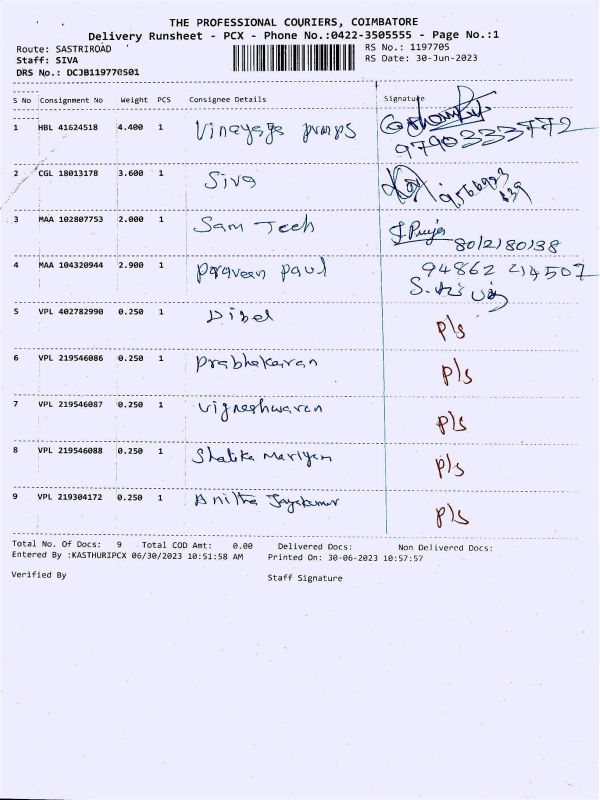 THE PROFESSIONAL COURIERS, COIMBATORE
Delivery Runsheet - PCX - Phone No.:0422-3505555 - Page No.:1
Route: SASTRIROAD RS No.: 1197705
Staff: SIVA RS Date: 30-Jun-2023
DRS No.: DCJB119770501
S No Consignment No Weight PCS Consignee Details Signature
1 HBL 41624518 4.400 1 Vinayaga pumps
9790333772
2 CGL 18013178 3.600 1 Siva
3 MAA 102807753 2.000 1 Sam Tech J. Priya
8012180138
4 MAA 104320944 2.900 1 Paraveen paul 94862 214507
5 VPL 402782990 0.250 1 Dibel P/s
6 VPL 219546086 0.250 1 Prabhakaran P/s
7 VPL 219546087 0.250 1 Vigneshwaran P/s
8 VPL 219546088 0.250 1 Shalika Mariyam P/s
9 VPL 219304172 0.250 1 Anitha Jayakumar P/s
Total No. Of Docs: 9 Total COD Amt: 0.00 Delivered Docs: Non Delivered Docs:
Entered By :KASTHURIPCX 06/30/2023 10:51:58 AM Printed On: 30-06-2023 10:57:57
Verified By Staff Signature